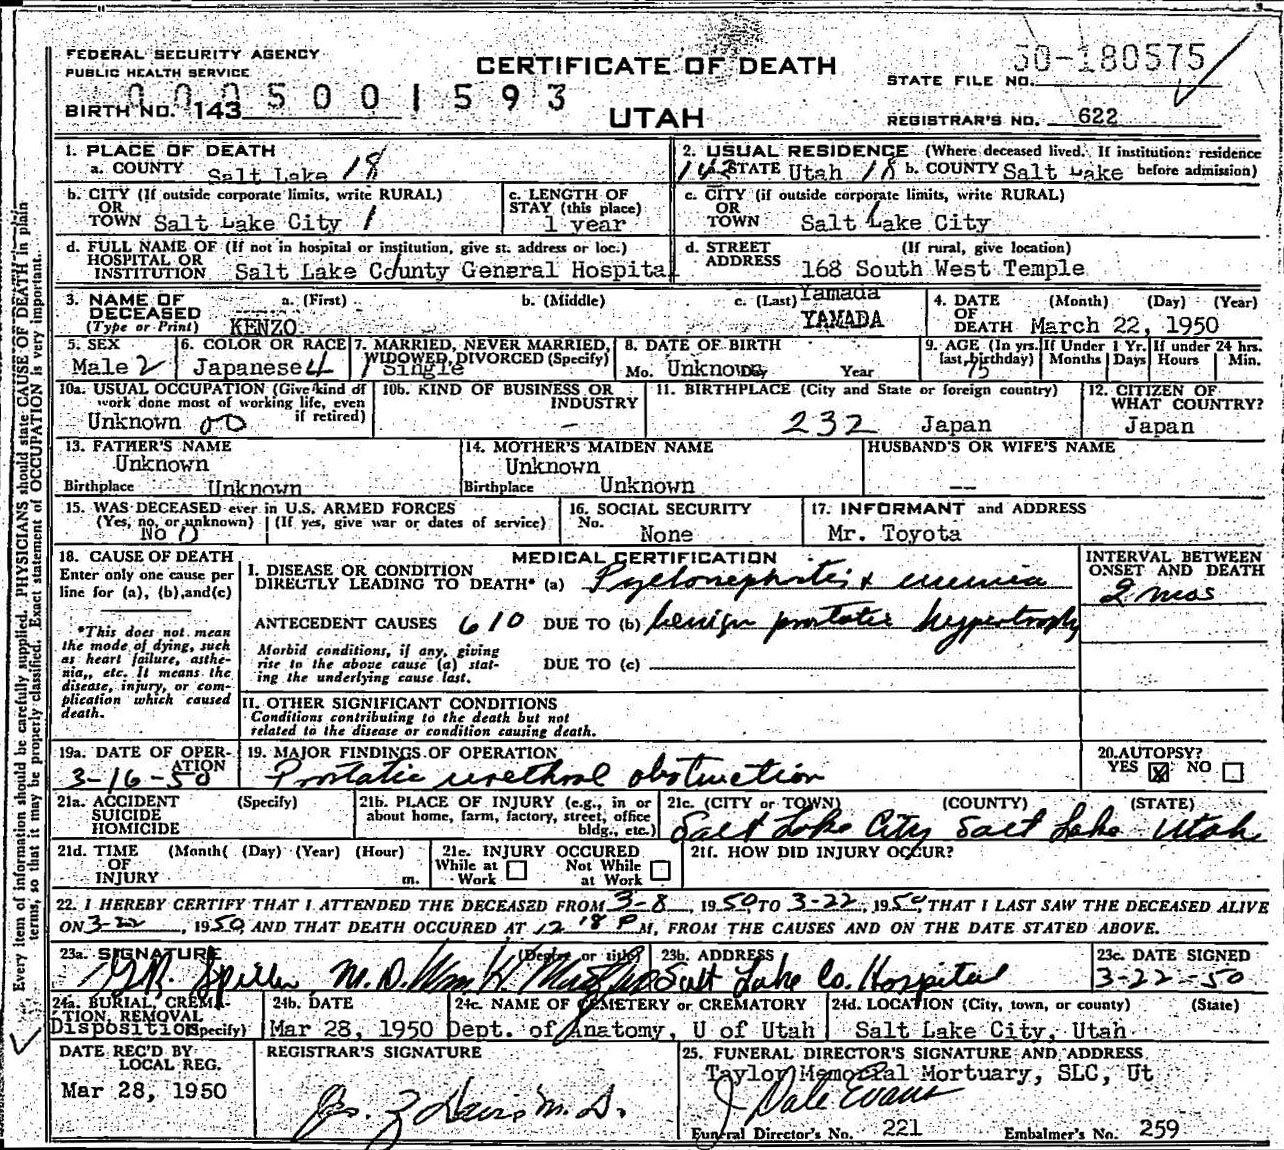 FEDERAL SECURITY AGENCY
PUBLIC HEALTH SERVICE
CERTIFICATE OF DEATH
50-180575
STATE FILE NO.
0005001593
BIRTH NO. 143
UTAH
REGISTRAR'S NO. 622
1. PLACE OF DEATH
a. COUNTY Salt Lake 18
2. USUAL RESIDENCE (Where deceased lived. If institution: residence before admission)
143 STATE Utah 18 b. COUNTY Salt Lake
b. CITY (If outside corporate limits, write RURAL)
OR
TOWN Salt Lake City 1
c. LENGTH OF STAY (this place)
1 year
c. CITY (if outside corporate limits, write RURAL)
OR
TOWN Salt Lake City
d. FULL NAME OF (If not in hospital or institution, give st. address or loc.)
HOSPITAL OR
INSTITUTION Salt Lake County General Hospital
d. STREET ADDRESS (If rural, give location)
168 South West Temple
3. NAME OF DECEASED
(Type or Print)
a. (First)
KENZO
b. (Middle)
c. (Last) Yamada
YAMADA
4. DATE OF DEATH (Month) (Day) (Year)
March 22, 1950
5. SEX
Male 2
6. COLOR OR RACE
Japanese 4
7. MARRIED, NEVER MARRIED, WIDOWED, DIVORCED (Specify)
1 Single
8. DATE OF BIRTH
Mo. Unknown Day Year
9. AGE (In yrs. last birthday)
75
If Under 1 Yr. Months Days
If under 24 hrs. Hours Min.
10a. USUAL OCCUPATION (Give kind of work done most of working life, even if retired)
Unknown 00
10b. KIND OF BUSINESS OR INDUSTRY
-
11. BIRTHPLACE (City and State or foreign country)
232 Japan
12. CITIZEN OF WHAT COUNTRY?
Japan
13. FATHER'S NAME
Unknown
Birthplace Unknown
14. MOTHER'S MAIDEN NAME
Unknown
Birthplace Unknown
HUSBAND'S OR WIFE'S NAME
--
15. WAS DECEASED ever in U.S. ARMED FORCES
(Yes, no, or unknown) (If yes, give war or dates of service)
No 0
16. SOCIAL SECURITY
No. None
17. INFORMANT and ADDRESS
Mr. Toyota
18. CAUSE OF DEATH
Enter only one cause per line for (a), (b), and (c)
*This does not mean the mode of dying, such as heart failure, asthenia, etc. It means the disease, injury, or complication which caused death.
MEDICAL CERTIFICATION
I. DISEASE OR CONDITION
DIRECTLY LEADING TO DEATH* (a) Pyelonephritis & uremia
INTERVAL BETWEEN ONSET AND DEATH
2 mos
ANTECEDENT CAUSES 610 DUE TO (b) benign prostatic hypertrophy
Morbid conditions, if any, giving rise to the above cause (a) stating the underlying cause last.
DUE TO (c)
II. OTHER SIGNIFICANT CONDITIONS
Conditions contributing to the death but not related to the disease or condition causing death.
19a. DATE OF OPERATION
3-16-50
19. MAJOR FINDINGS OF OPERATION
Prostatic urethral obstruction
20. AUTOPSY?
YES X NO
21a. ACCIDENT (Specify)
SUICIDE
HOMICIDE
21b. PLACE OF INJURY (e.g., in or about home, farm, factory, street, office bldg., etc.)
21c. (CITY or TOWN) (COUNTY) (STATE)
Salt Lake City Salt Lake Utah
21d. TIME OF INJURY (Month( (Day) (Year) (Hour) m.
21e. INJURY OCCURED
While at Work Not While at Work
21f. HOW DID INJURY OCCUR?
22. I HEREBY CERTIFY THAT I ATTENDED THE DECEASED FROM 3-8, 1950, TO 3-22, 1950, THAT I LAST SAW THE DECEASED ALIVE
ON 3-22, 1950, AND THAT DEATH OCCURED AT 12 18 P M, FROM THE CAUSES AND ON THE DATE STATED ABOVE.
23a. SIGNATURE (Degree or title)
M.D.
23b. ADDRESS
Salt Lake Co. Hospital
23c. DATE SIGNED
3-22-50
24a. BURIAL, CREMATION, REMOVAL (Specify)
Disposition
24b. DATE
Mar 28, 1950
24c. NAME OF CEMETERY or CREMATORY
Dept. of Anatomy, U of Utah
24d. LOCATION (City, town, or county) (State)
Salt Lake City, Utah
DATE REC'D BY LOCAL REG.
Mar 28, 1950
REGISTRAR'S SIGNATURE
M.D.
25. FUNERAL DIRECTOR'S SIGNATURE AND ADDRESS
Taylor Memorial Mortuary, SLC, Ut
J Dale Evans
Funeral Director's No. 221 Embalmer's No. 259
Every item of information should be carefully supplied. PHYSICIANS should state CAUSE OF DEATH in plain
terms, so that it may be properly classified. Exact statement of OCCUPATION is very important.